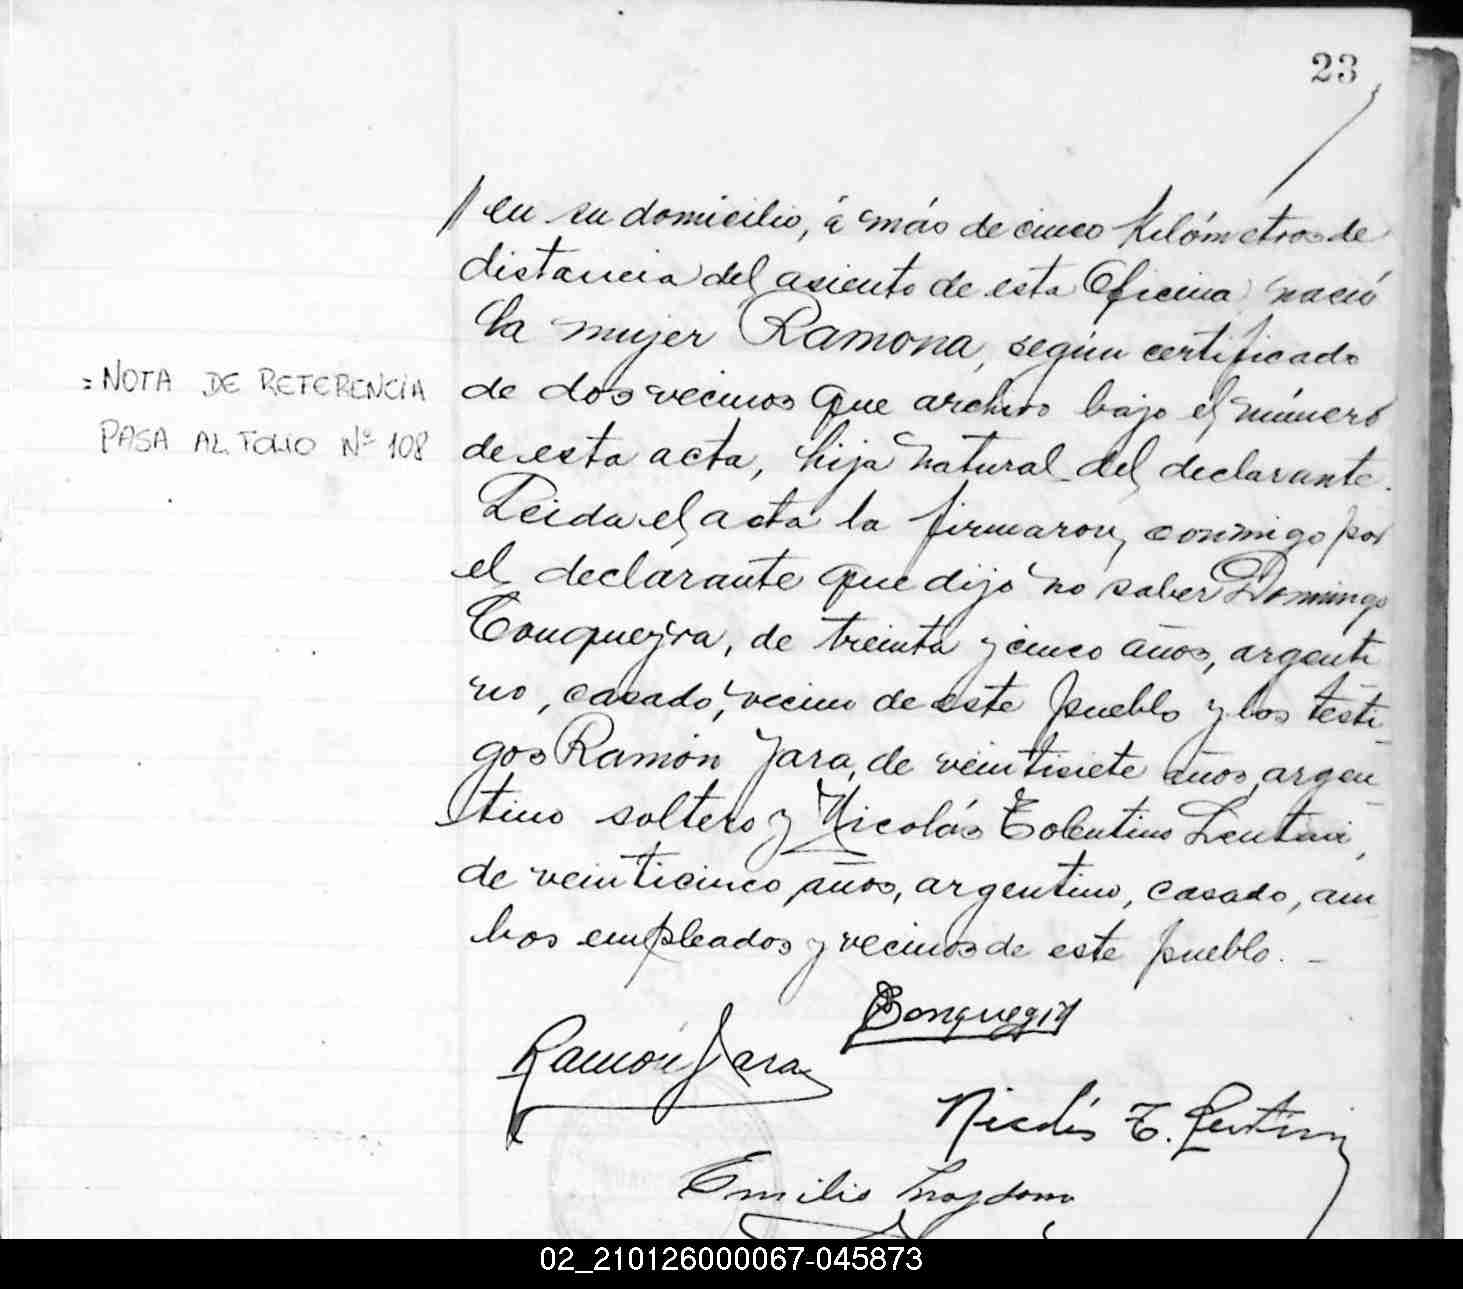 23
// en su domicilio, á más de cinco kilómetros de
distancia del asiento de esta Oficina nació
la mujer Ramona, según certificado
de dos vecinos que archivo bajo el número
de esta acta, hija natural del declarante.
Leida el acta la firmaron conmigo por
el declarante que dijo no saber Domingo
Conqueyra, de treinta y cinco años, argenti
no, casado, vecino de este pueblo y los testi
gos Ramón Jara, de veintisiete años, argen
tino soltero y Nicolás Tolentino Lentini,
de veinticinco años, argentino, casado, am
bos empleados y vecinos de este pueblo. -
= NOTA DE REFERENCIA
PASA AL FOLIO Nº 108
Ramón Jara
Nicolás T. Lentini
Emilio
02_210126000067-045873